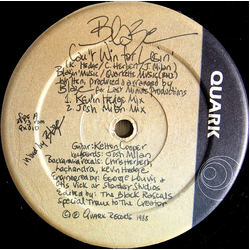 Blaze
Can't Win for Losin'
K. Hedge / C. Herbert / J. Milan
Blazin Music / Quarkette Music (BMI)
Written, produced & arranged by
Blaze for Lost Minds Productions
1. Kevin Hedge Mix
2. Josh Milan Mix
33 1/3 RPM
mixed by Blaze
Guitar: Kelton Cooper
Keyboards: Josh Milan
Background vocals: Chris Herbert,
Kevin Hedge
Engineered by: George Louis &
at Studios
Edited by: The Black Rascals
Special Thanx to The Creator
© ℗ Quark Records 1988
QUARK